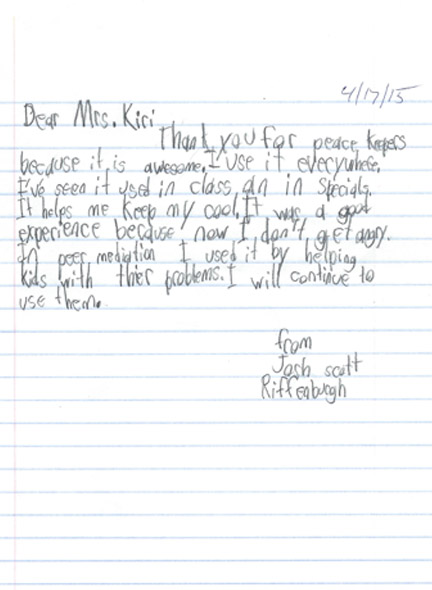 4/17/15
Dear Mrs. Kiri
Thank you for peace keepers
because it is awesome. I use it everywhere.
I've seen it used in class, an in specials.
It helps me keep my cool. It was a good
experience because now I don't get angry.
In peer mediation I used it by helping
kids with thier problems. I will continue to
use them.
from
Josh scott
Riffenburgh